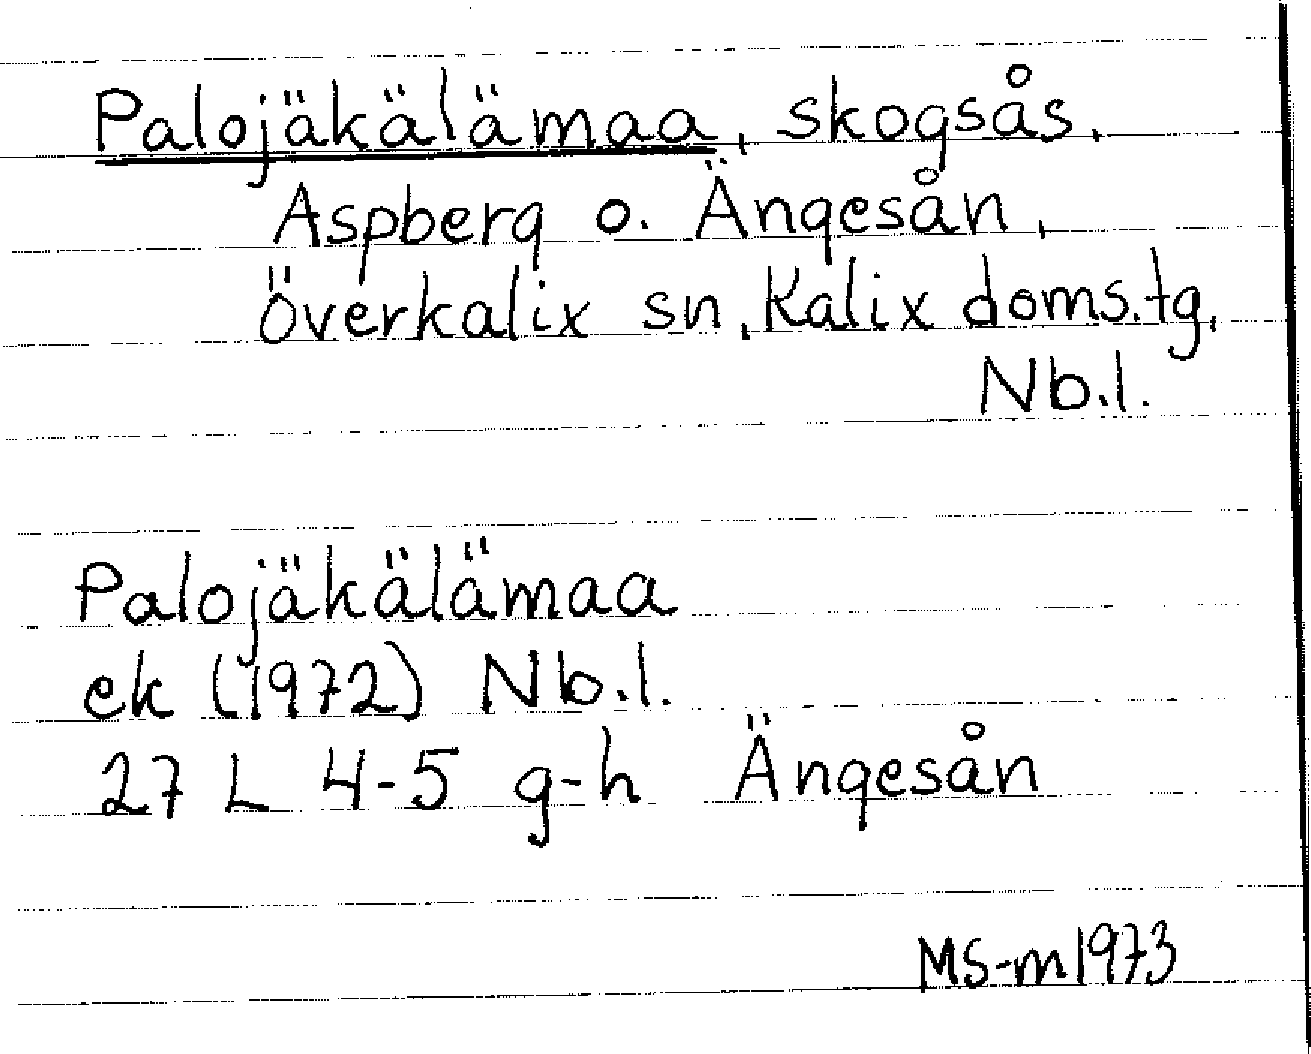 Palojäkälämaa, skogsås.
Aspberg o. Ängesån,
Överkalix sn, Kalix doms.tg,
Nb.l.
Palojäkälämaa
ek (1972) Nb.l.
27 L 4-5 g-h Ängesån
MS-m1973